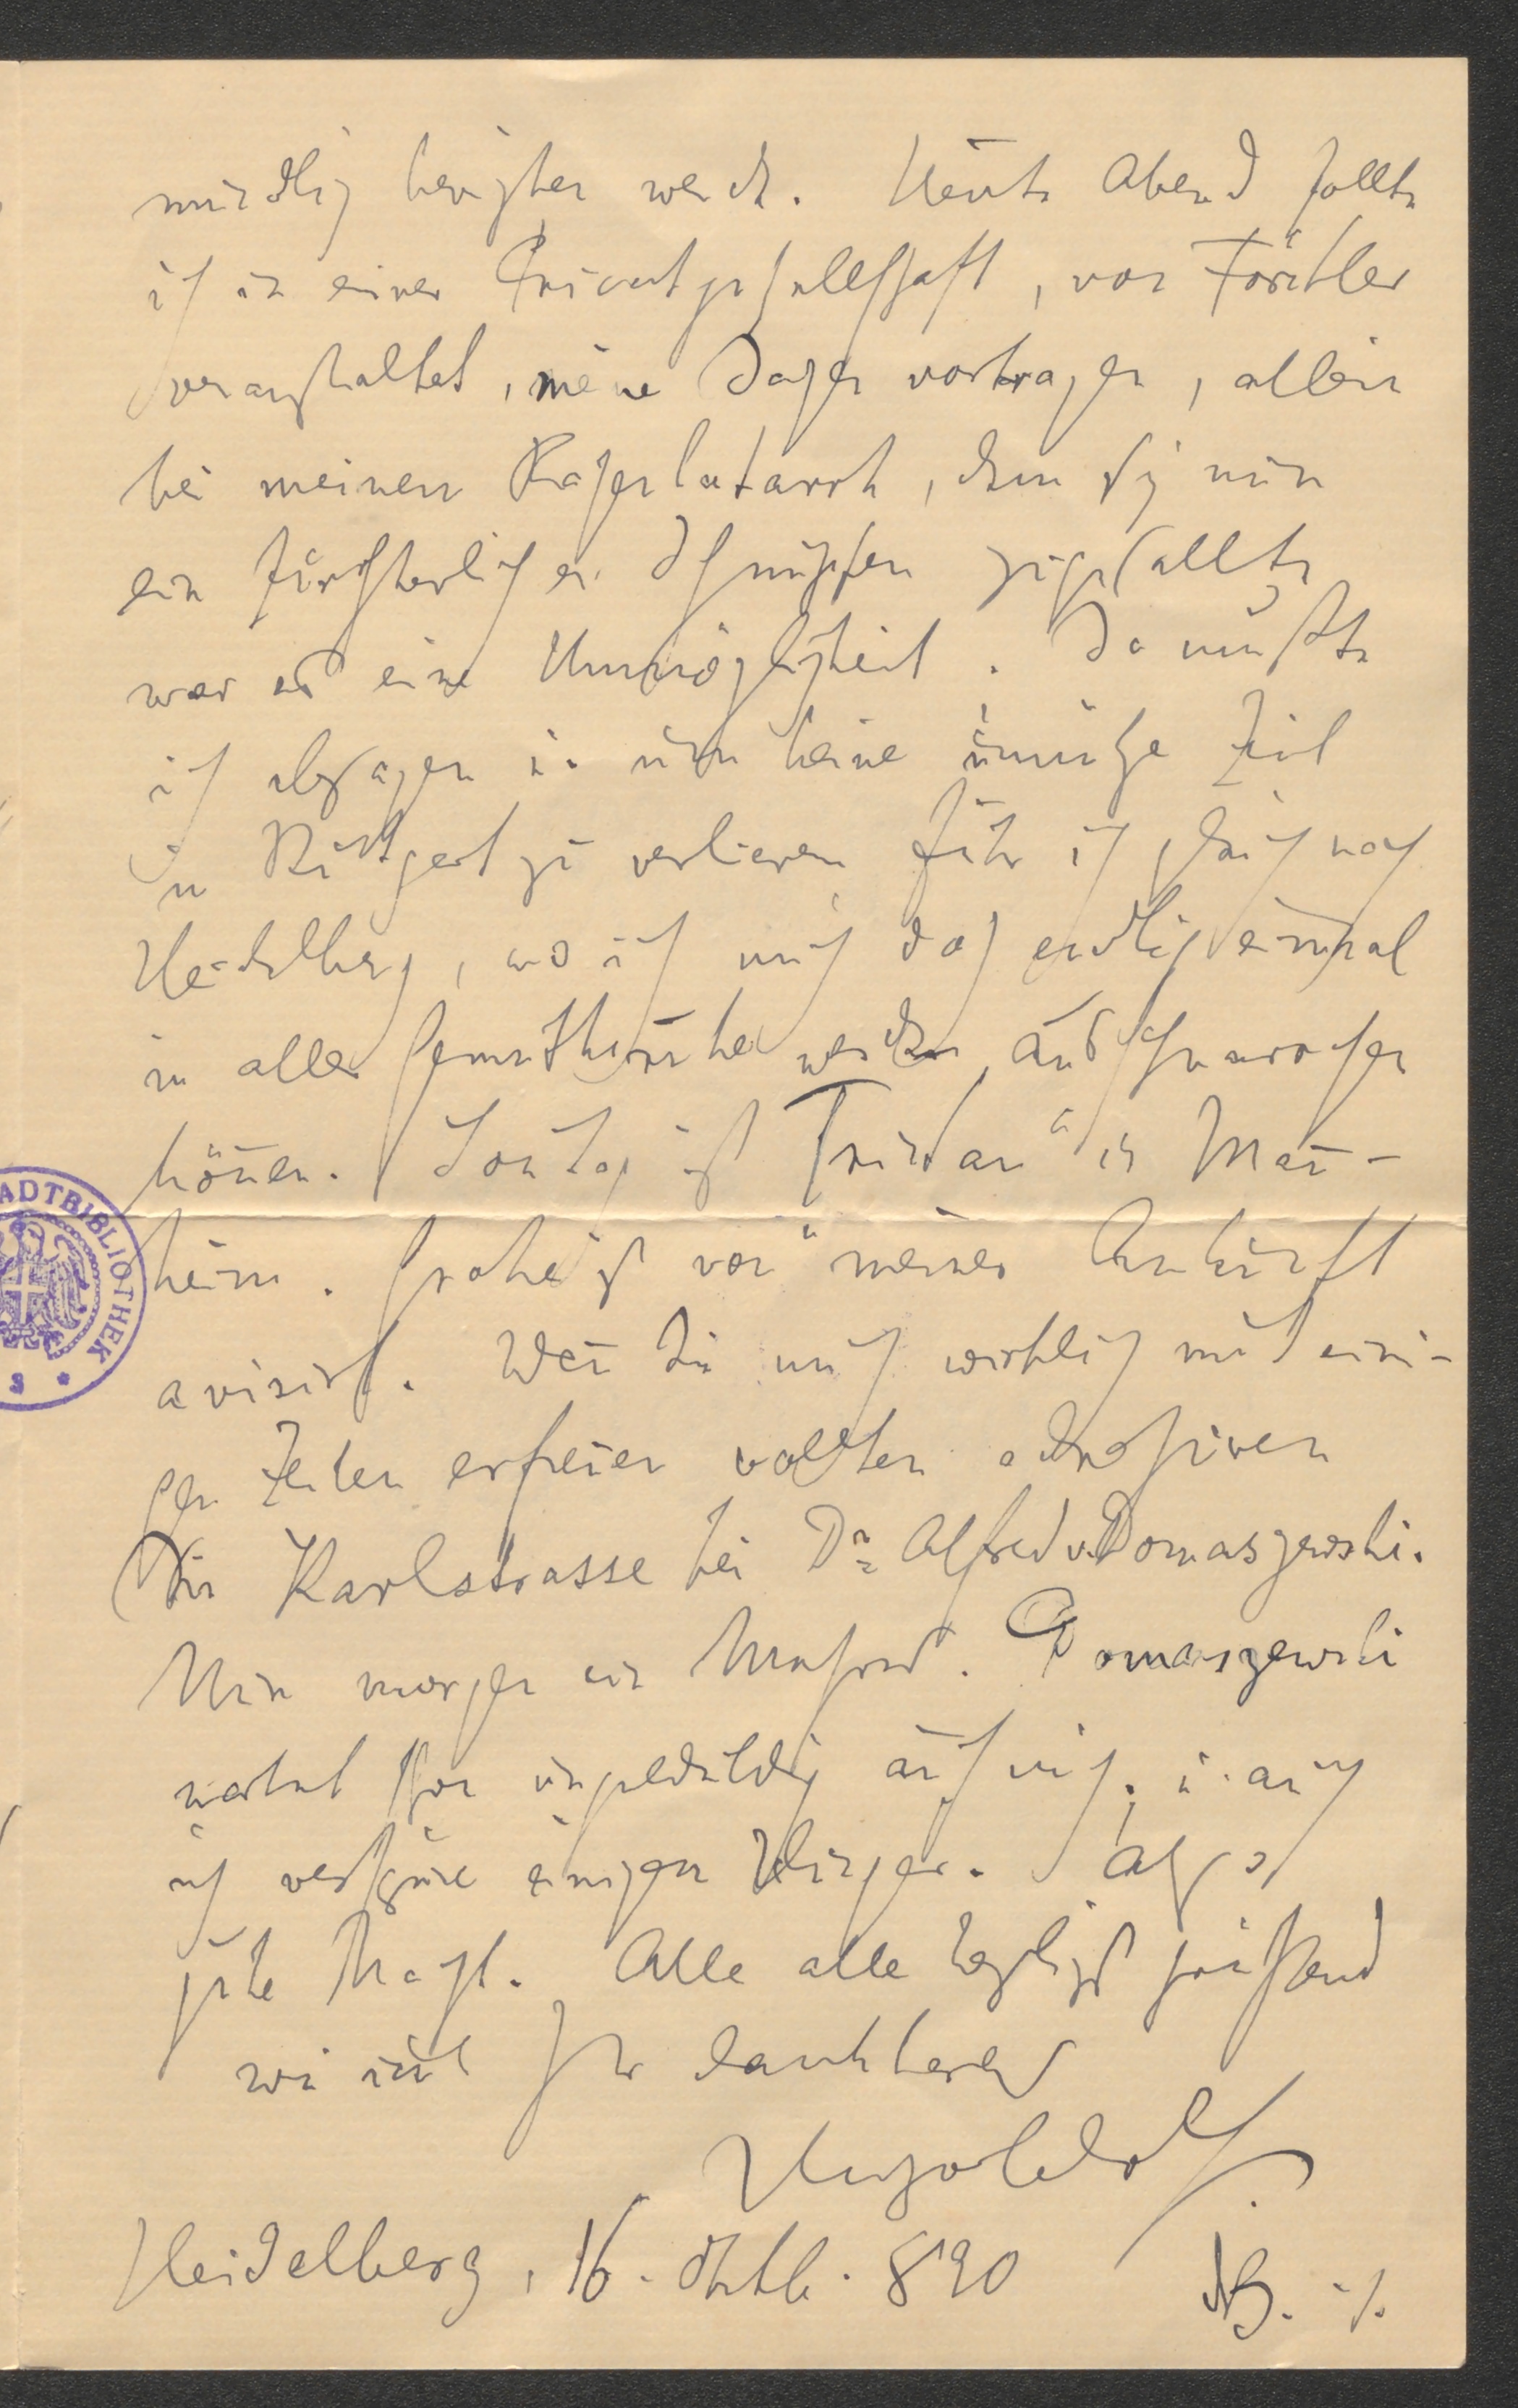 mündlich berichten werde. Heute Abend sollte
ich in einer Privatgesellschaft, von Förstler
veranstaltet, meine Sachen vortragen, allein
bei meinem Rachenkatarrh, dem sich nun
ein fürchterlicher Schnupfen zugesellte
war es eine Unmöglichkeit. Da mußte
ich absagen u. um keine unnütze Zeit
in Stuttgart zu verlieren fuhr ich gleich nach
Heidelberg, wo ich mich doch endlich einmal
in aller Gemüthsruhe werde ausschnarchen
können. Sontag ist „Tristan“ in Man-
heim. Grohe ist von meiner Ankunft
avisirt. Wenn Sie mich wirklich mit eini-
gen Zeilen erfreuen wollten adressiren
Sie Karlstrasse bei Dr. Alfred v. Domaszewski.
Nun morgen ein Mehres. Domaszewski
wartet schon ungeduldig auf mich, u. auch
ich verspüre einigen Hunger. Also
gute Nacht. Alle alle herzlichst grüßend
wie immer Ihr dankbarer
Hugo Wolf
Heidelberg, 16. Oktb. 890 NB. ·/.
STADTBIBLIOTHEK